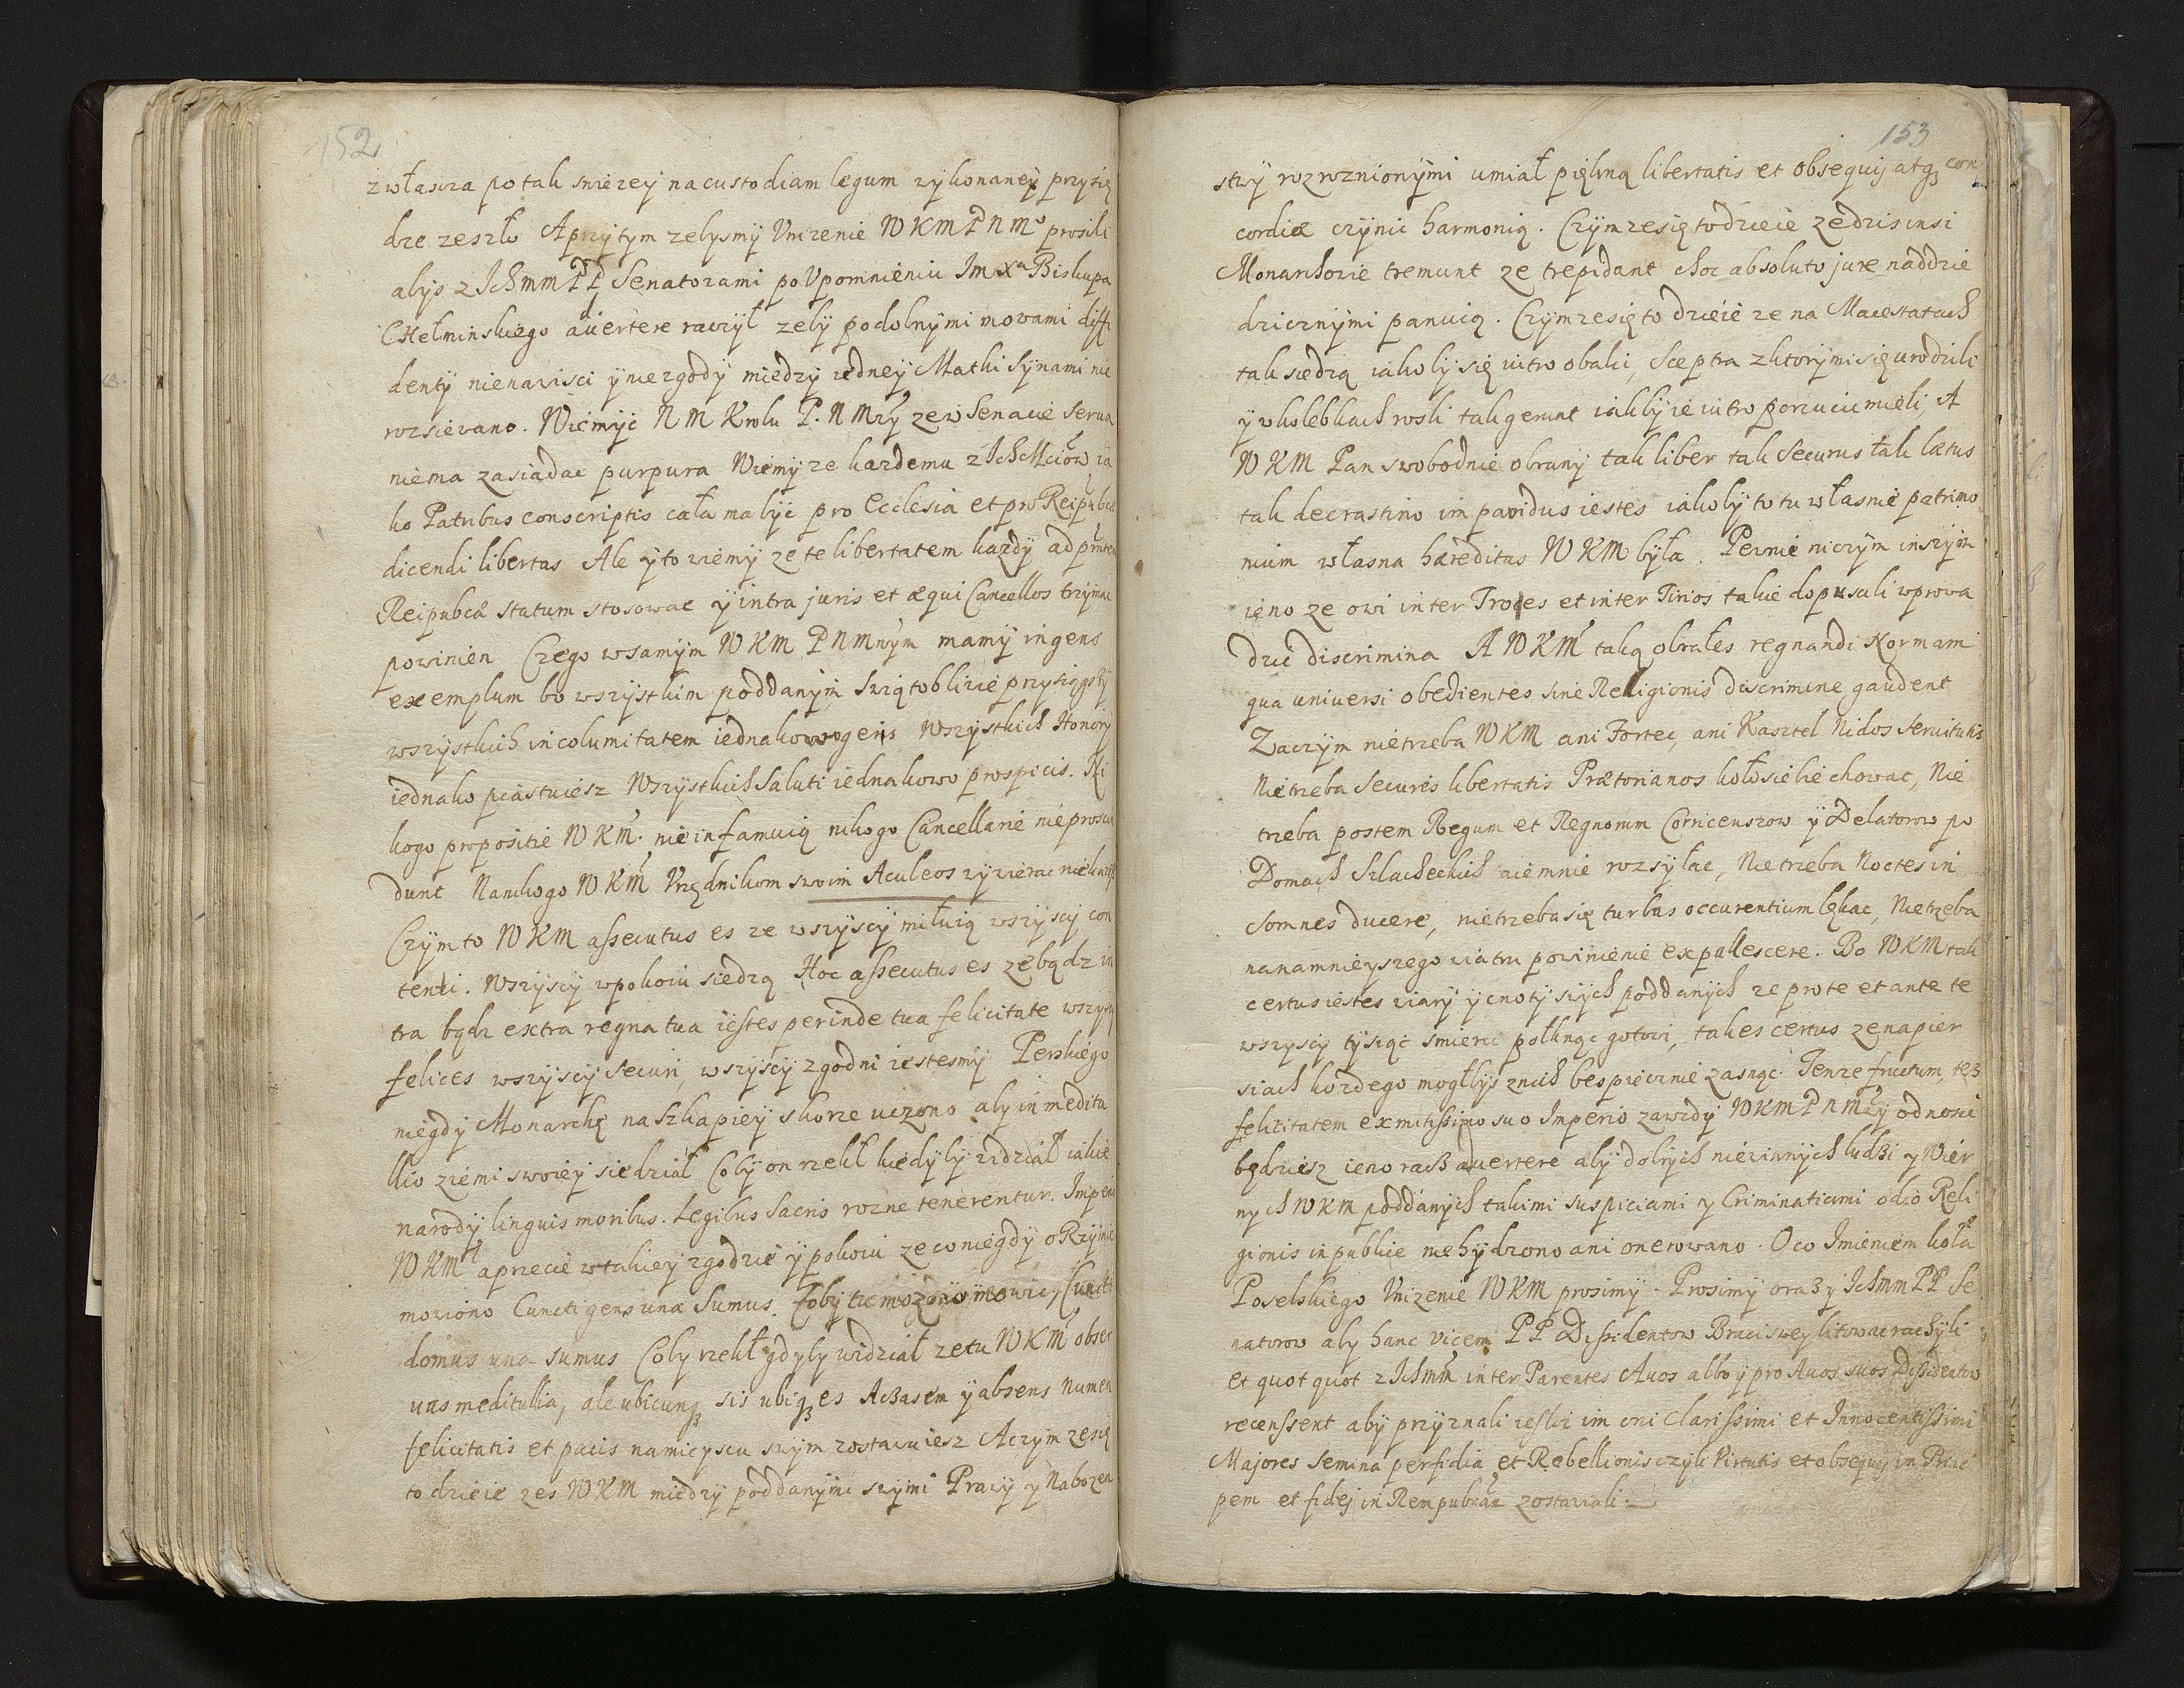 152
zwłascza po tak swiezey na custodiam legum wykonaney przysię
dze zeszło A przytym zebysmy Unizenie WKM P N Mo prosili
abys z Ich mm PP Senatorami po Upomnieniu Jm Xa Biskupa
CHełminskiego avertere raczył zeby podobnymi mowami diffi
dentÿ nienawisci ÿ niezgodÿ miedzÿ iedney Matki Synami nie
rozsiewano. Wiemÿć N M Krolu P. N Mzÿ ze w Senacie Serva
niema zasiadac purpura Wiemÿ ze kazdemu z Ich Mciow ia
ko Patribus conscriptis cała ma bÿć pro Ecclesia et pro Reipubcæ
dicendi libertas Ale ÿ to wiemÿ ze te libertatem kazdÿ ad pñtem
Reipubcæ statum stosowac ÿ intra juris et æqui Cancellos trzÿmac
powinien Czego w samÿm WKM P N Mnÿm mamÿ ingens
exemplum bo wszÿstkim poddanÿm swiątobliwie przysiągszÿ
wszÿstkich incolumitatem iednakowo geris Wszÿstkich Honorÿ
iednako piastuiesz Wszÿstkich Saluti iednakowo prospicis. Ni
kogo propositie WKM. nie infamuią nikogo Cancellarie nie proscri
dunt Na nikogo WKM Urzędnikom swoim Aculeos wywierac nie każesz
Czÿm to WKM assecutus es ze wszÿscÿ miłuią wszÿscÿ con
tenti. Wszÿscÿ w pokoiu siedzą Hoc assecutus es ze bądz in
tra bądz extra regna tua iestes perinde tua felicitate wszÿscÿ
felices wszÿscÿ securi, wszÿscÿ zgodni iestesmÿ Perskiego
niegdÿ Monarchę na Szkapiey skorze uczono aby in meditu
llio ziemi swoieÿ siedział Cobÿ on rzekł kiedÿbÿ widział iakie
narodÿ linguis moribus. Legibus Sacris rozne tenerentur. Imperio
WKM a przecie w takieÿ zgodzie ÿ pokoiu ze co niegdÿ o Rzÿmie
mowiono Cuncti gens una Sumus. Tobÿ tu mozono mowic, Cuncti
domus una sumus Cobÿ rzekł gdyby widział ze tu WKM obser
uas meditullia, ale ubicunqꝫ sis ubiqꝫ es A Basem ÿ absens Numen
felicitatis et pacis na mieÿscu swÿm zostawuiesz A czÿm ze się
to dzieie zes WKM miedzÿ poddanÿmi swÿmi Prawÿ ÿ Nabozen
153
stwÿ rozroznionÿmi umiał piękną libertatis et obsequij atqꝫ con
cordiæ czÿnic harmonią. Czÿm ze się to dzieie ze dzis insi
Monarchowie tremunt ze trepidant choc absoluto jure nad dzie
dzicznÿmi panuią. Czÿm ze się to dzieie ze na Maiestatach
tak siedzą iakobÿ się iutro obalic, Sceptra z ktorÿmi się urodzili
ÿ w kolebkach rosli tak gerunt iakbÿ ie iutro porzucic mieli, A
WKM Pan swobodnie obranÿ tak liber tak securus tak lætus
tak de crastino impavidus iestes iakobÿ to tu własnie patrimo
nium własna hæreditas WKM bÿła. Pewnie niczÿm inszÿm
ieno ze owi inter Troes et inter Tirios takie dopuscili wprowa
dzic discrimina A WKM taką obrałes regnandi Normam
qua universi obedientes sine Religionis discrimine gaudent
Zaczÿm nietrzeba WKM ani Fortec, ani Kasztel Nidos Servitutis
Nietrzeba Secures libertatis Prætorianos koło siebie chowac, Nie
trzeba postem Regum et Regnorum Cornicenszow ÿ Delatorow po
Domach Szlacheckich taiemnie rozsÿłac, Nietrzeba Noctes in
somnes ducere, nietrzeba się turbas occurentium lękac, Nietrzeba
na namnieyszego wiatru powinienie expallescere. Bo WKM tak
certus iestes wiarÿ ÿ cnotÿ swÿch poddanÿch ze pro te et ante te
wszyscÿ tÿsiąc smierci połknąc gotowi, tak es certus ze na pier
siach kozdego mogłbÿs znich bespiecznie zasnąc. Tenze fructum, tęż
felicitatem ex mitissimo suo Imperio zawzdÿ WKM P N Mzÿ odnosic
będziesz ieno racz avertere abÿ dobrÿch niewinnÿch ludzi y Wier
nych WKM poddanÿch takimi suspiciami y Criminatiami odio Reli
gionis in publice nie hÿdzono ani onerowano. O co Imieniem koła
Poselskiego Unizenie WKM prosimÿ. Prosimÿ oraz y Ich mm PP Se
natorow aby hanc vicem PP Dissidentow Braci swey litowac raczÿli
et quot quot z Ich mm inter Parentes Avos albo ÿ pro Avos suos Dissidentow
recenssent abÿ przÿznali iesliż im oni Clarissimi et Innocentissimi
Majores Semina perfidiæ et Rebellionis czÿli Virtutis et obsequij in Princi
pem et fidej in Rempubcam zostawiali.